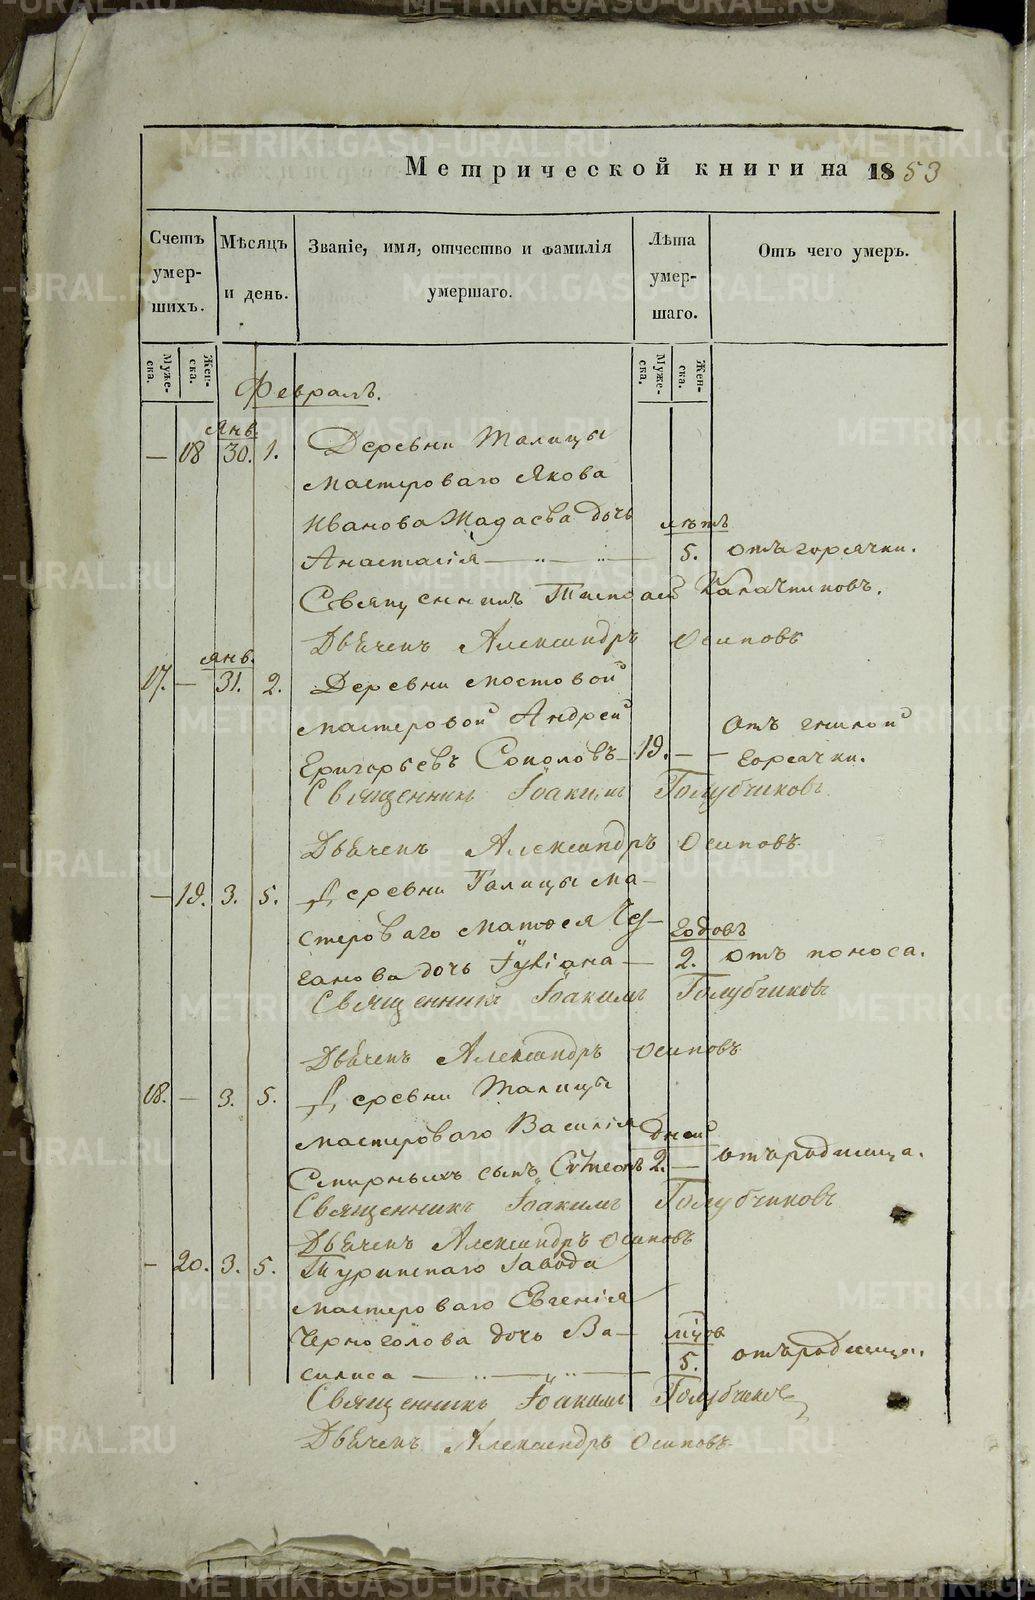 Метрической книги на 1853
Счетъ умер- шихъ.
Мѣсяцъ и день.
Званіе, имя, отчество и фамилія умершаго.
Лѣта умер- шаго.
Отъ чего умеръ.
Муже- ска.
Жен- ска.
Муже- ска.
Жен- ска.
Февраль.
Янв.
— 18 30. 1. Деревни Талицы
мастероваго Якова
Иванова дочь лѣтъ
Анастасія — 5. отъ горячки.
Священникъ Калачниковъ.
Дьячекъ Александръ Осиповъ
Янв.
17. — 31. 2. Деревни Мостовой
мастеровой Андрей Отъ гнилой
Григорьевъ Соколовъ 19. — — горячки.
Священникъ Іоакимъ Голубчиковъ
Дьячекъ Александръ Осиповъ
— 19. 3. 5. Деревни Талицы ма-
стероваго Матѳея
годовъ
ганова дочь Іуліана — 2. отъ поноса.
Священникъ Іоакимъ Голубчиковъ
Дьячекъ Александръ Осиповъ
18. — 3. 5. Деревни Талицы
мастероваго Василія дней
Смирныхъ сынъ Сѵмеонъ 2. — отъ родимца.
Священникъ Іоакимъ Голубчиковъ
Дьячекъ Александръ Осиповъ
— 20. 3. 5. Туринскаго Завода
мастероваго Евгенія
Черноголова дочь Ва- мѣцов
силиса — 5. отъ родимца.
Священникъ Іоакимъ Голубчиковъ
Дьячекъ Александръ Осиповъ
METRIKI.GASO-URAL.RU